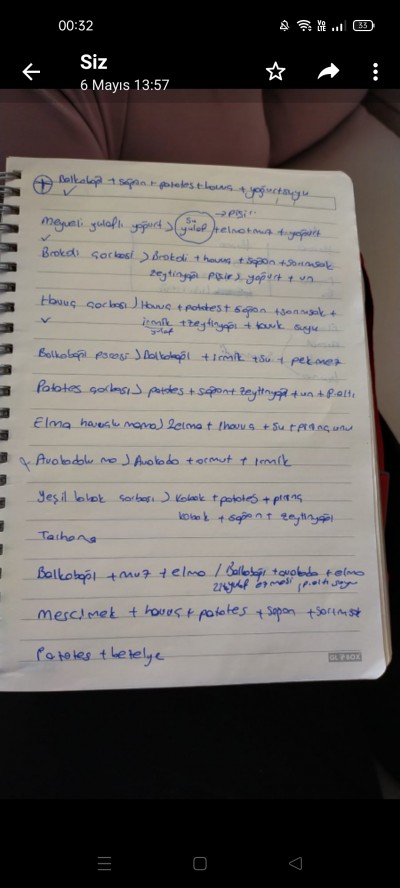 00:32
Vo LTE
33
Siz
6 Mayıs 13:57
+ Balkabağı + soğan + patates + havuç + yoğurt suyu
Meyveli yulaflı yoğurt) Su yulaf → pişir + elma + muz + yoğurt
Brokoli çorbası) Brokoli + havuç + soğan + sarımsak
zeytinyağı pişir) yoğurt + un
Havuç çorbası) Havuç + patates + soğan + sarımsak +
irmik + zeytinyağı + tavuk suyu
yulaf
Balkabağı + irmik + su + pekmez
Patates çorbası) patates + soğan + zeytinyağı + un +
Elma havuçlu mama) 2 elma + 1 havuç + su + pirinç unu
Avokadolu ma) Avokado + armut + irmik
Yeşil kabak çorbası) kabak + patates + pirinç
kabak + soğan + zeytinyağı
Tarhana
Balkabağı + muz + elma / Balkabağı + avokado + elma
yulaf ezmesi
Mercimek + havuç + patates + soğan + sarımsak
Patates + bezelye